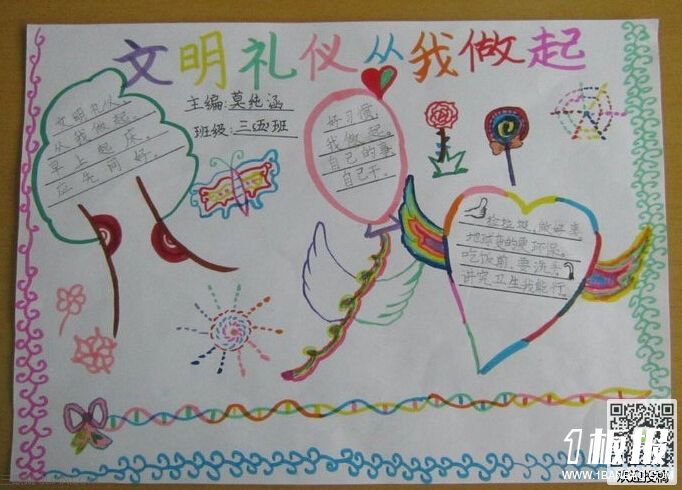 文明礼仪从我做起
主编:莫纯涵
班级:三(5)班
文明礼仪
从我做起。
早上起床,
应先问好。
好习惯,
我做起。
自己的事
自己干。
捡垃圾,做好事
地球变的更环保。
吃饭前,要洗手,
讲究卫生我能行。
1板报
www.1BANBAO.com
欢迎投稿